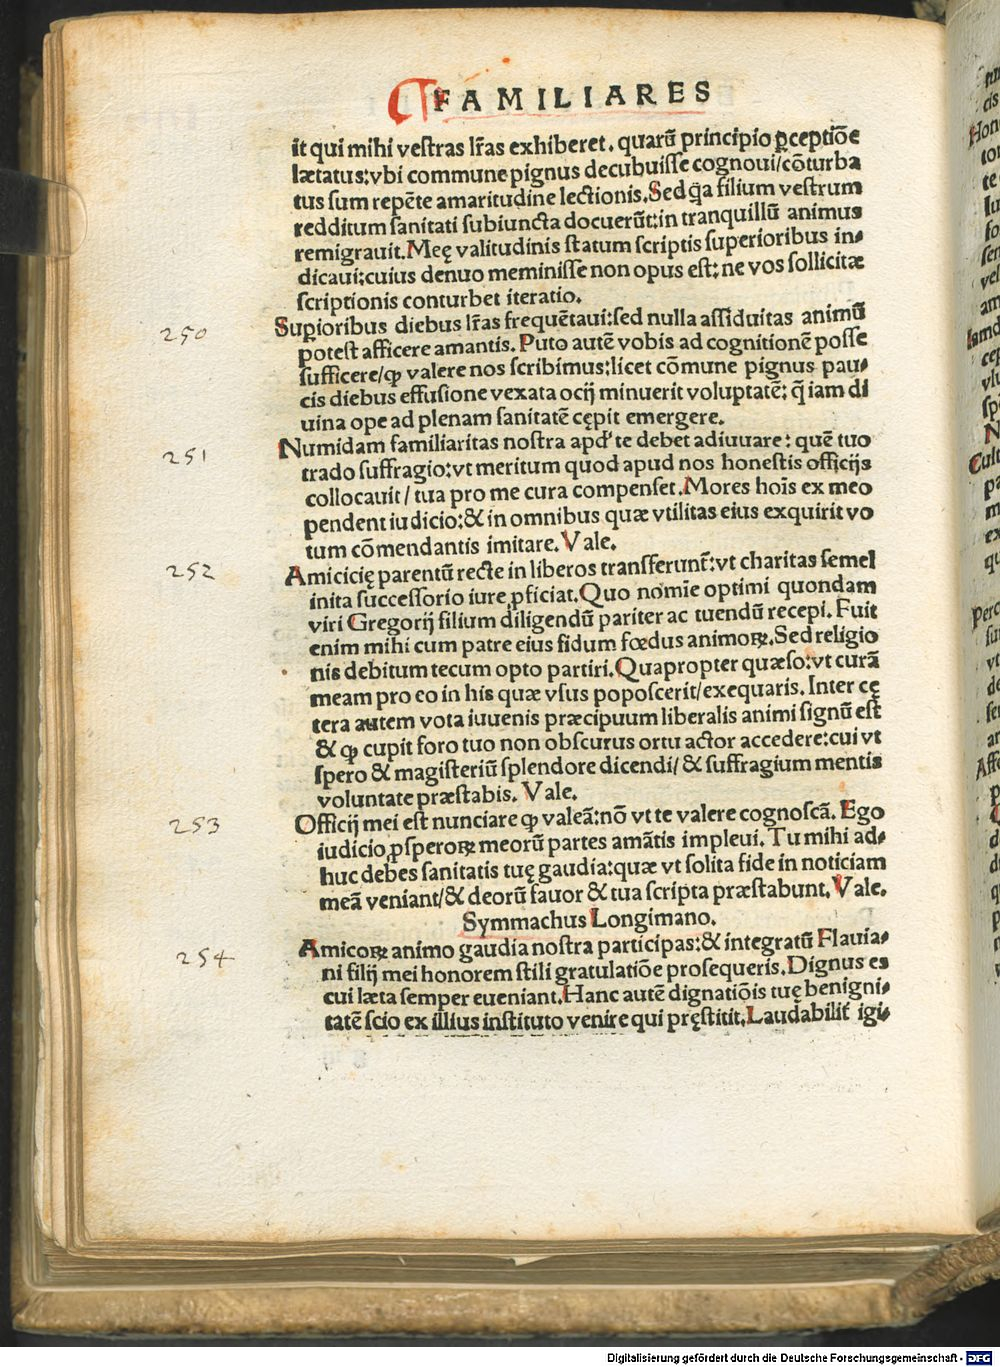 FAMILIARES
it qui mihi veſtras lr̃as exhiberet. quarũ principio ꝑceptiõe
lætatus:vbi commune pignus decubuiſſe cognoui/cõturba
tus ſum repẽte amaritudine lectionis.Sed q̃a filium veſtrum
redditum ſanitati ſubiuncta docuerũt:in tranquillũ animus
remigrauit.Meę valitudinis ſtatum ſcriptis ſuperioribus in⸗
dicaui:cuius denuo meminiſſe non opus eſt: ne vos ſollicitæ
ſcriptionis conturbet iteratio.
250
Suꝑioribus diebus lr̃as frequẽtaui:ſed nulla aſſiduitas animũ
poteſt afficere amantis. Puto autẽ vobis ad cognitionẽ poſſe
ſufficere/ꝙ valere nos ſcribimus:licet cõmune pignus pau⸗
cis diebus effuſione vexata ocij minuerit voluptatẽ: q̃ iam di
uina ope ad plenam ſanitatẽ cępit emergere.
251
Numidam familiaritas noſtra apd' te debet adiuuare: quẽ tuo
trado ſuffragio:vt meritum quod apud nos honeſtis officijs
collocauit/ tua pro me cura compenſet.Mores hoĩs ex meo
pendent iudicio:& in omnibus quæ vtilitas eius exquirit vo
tum cõmendantis imitare. Vale.
252
Amicicię parentũ recte in liberos transferunt᷑:vt charitas ſemel
inita ſucceſſorio iure ꝓficiat.Quo nomĩe optimi quondam
viri Gregorij filium diligendũ pariter ac tuendũ recepi. Fuit
enim mihi cum patre eius fidum fœdus animoꝝ.Sed religio
nis debitum tecum opto partiri.Quapropter quæſo:vt curã
meam pro eo in his quæ vſus popoſcerit/exequaris. Inter cę
tera autem vota iuuenis præcipuum liberalis animi ſignũ eſt
& ꝙ cupit foro tuo non obſcurus ortu actor accedere:cui vt
ſpero & magiſteriũ ſplendore dicendi/ & ſuffragium mentis
voluntate præſtabis. Vale.
253
Officij mei eſt nunciare ꝙ valeã:nõ vt te valere cognoſcã. Ego
iudicio ꝓſperoꝝ meorũ partes amãtis impleui. Tu mihi ad⸗
huc debes ſanitatis tuę gaudia:quæ vt ſolita fide in noticiam
meã veniant/& deorũ fauor & tua ſcripta præſtabunt. Vale.
Symmachus Longimano.
254
Amicoꝝ animo gaudia noſtra participas:& integratũ Flauia⸗
ni filij mei honorem ſtili gratulatiõe proſequeris.Dignus es
cui læta ſemper eueniant.Hanc autẽ dignatiõis tuę benigni⸗
tatẽ ſcio ex illius inſtituto venire qui pręſtitit.Laudabilit᷑ igi⸗
Digitalisierung gefördert durch die Deutsche Forschungsgemeinschaft - DFG